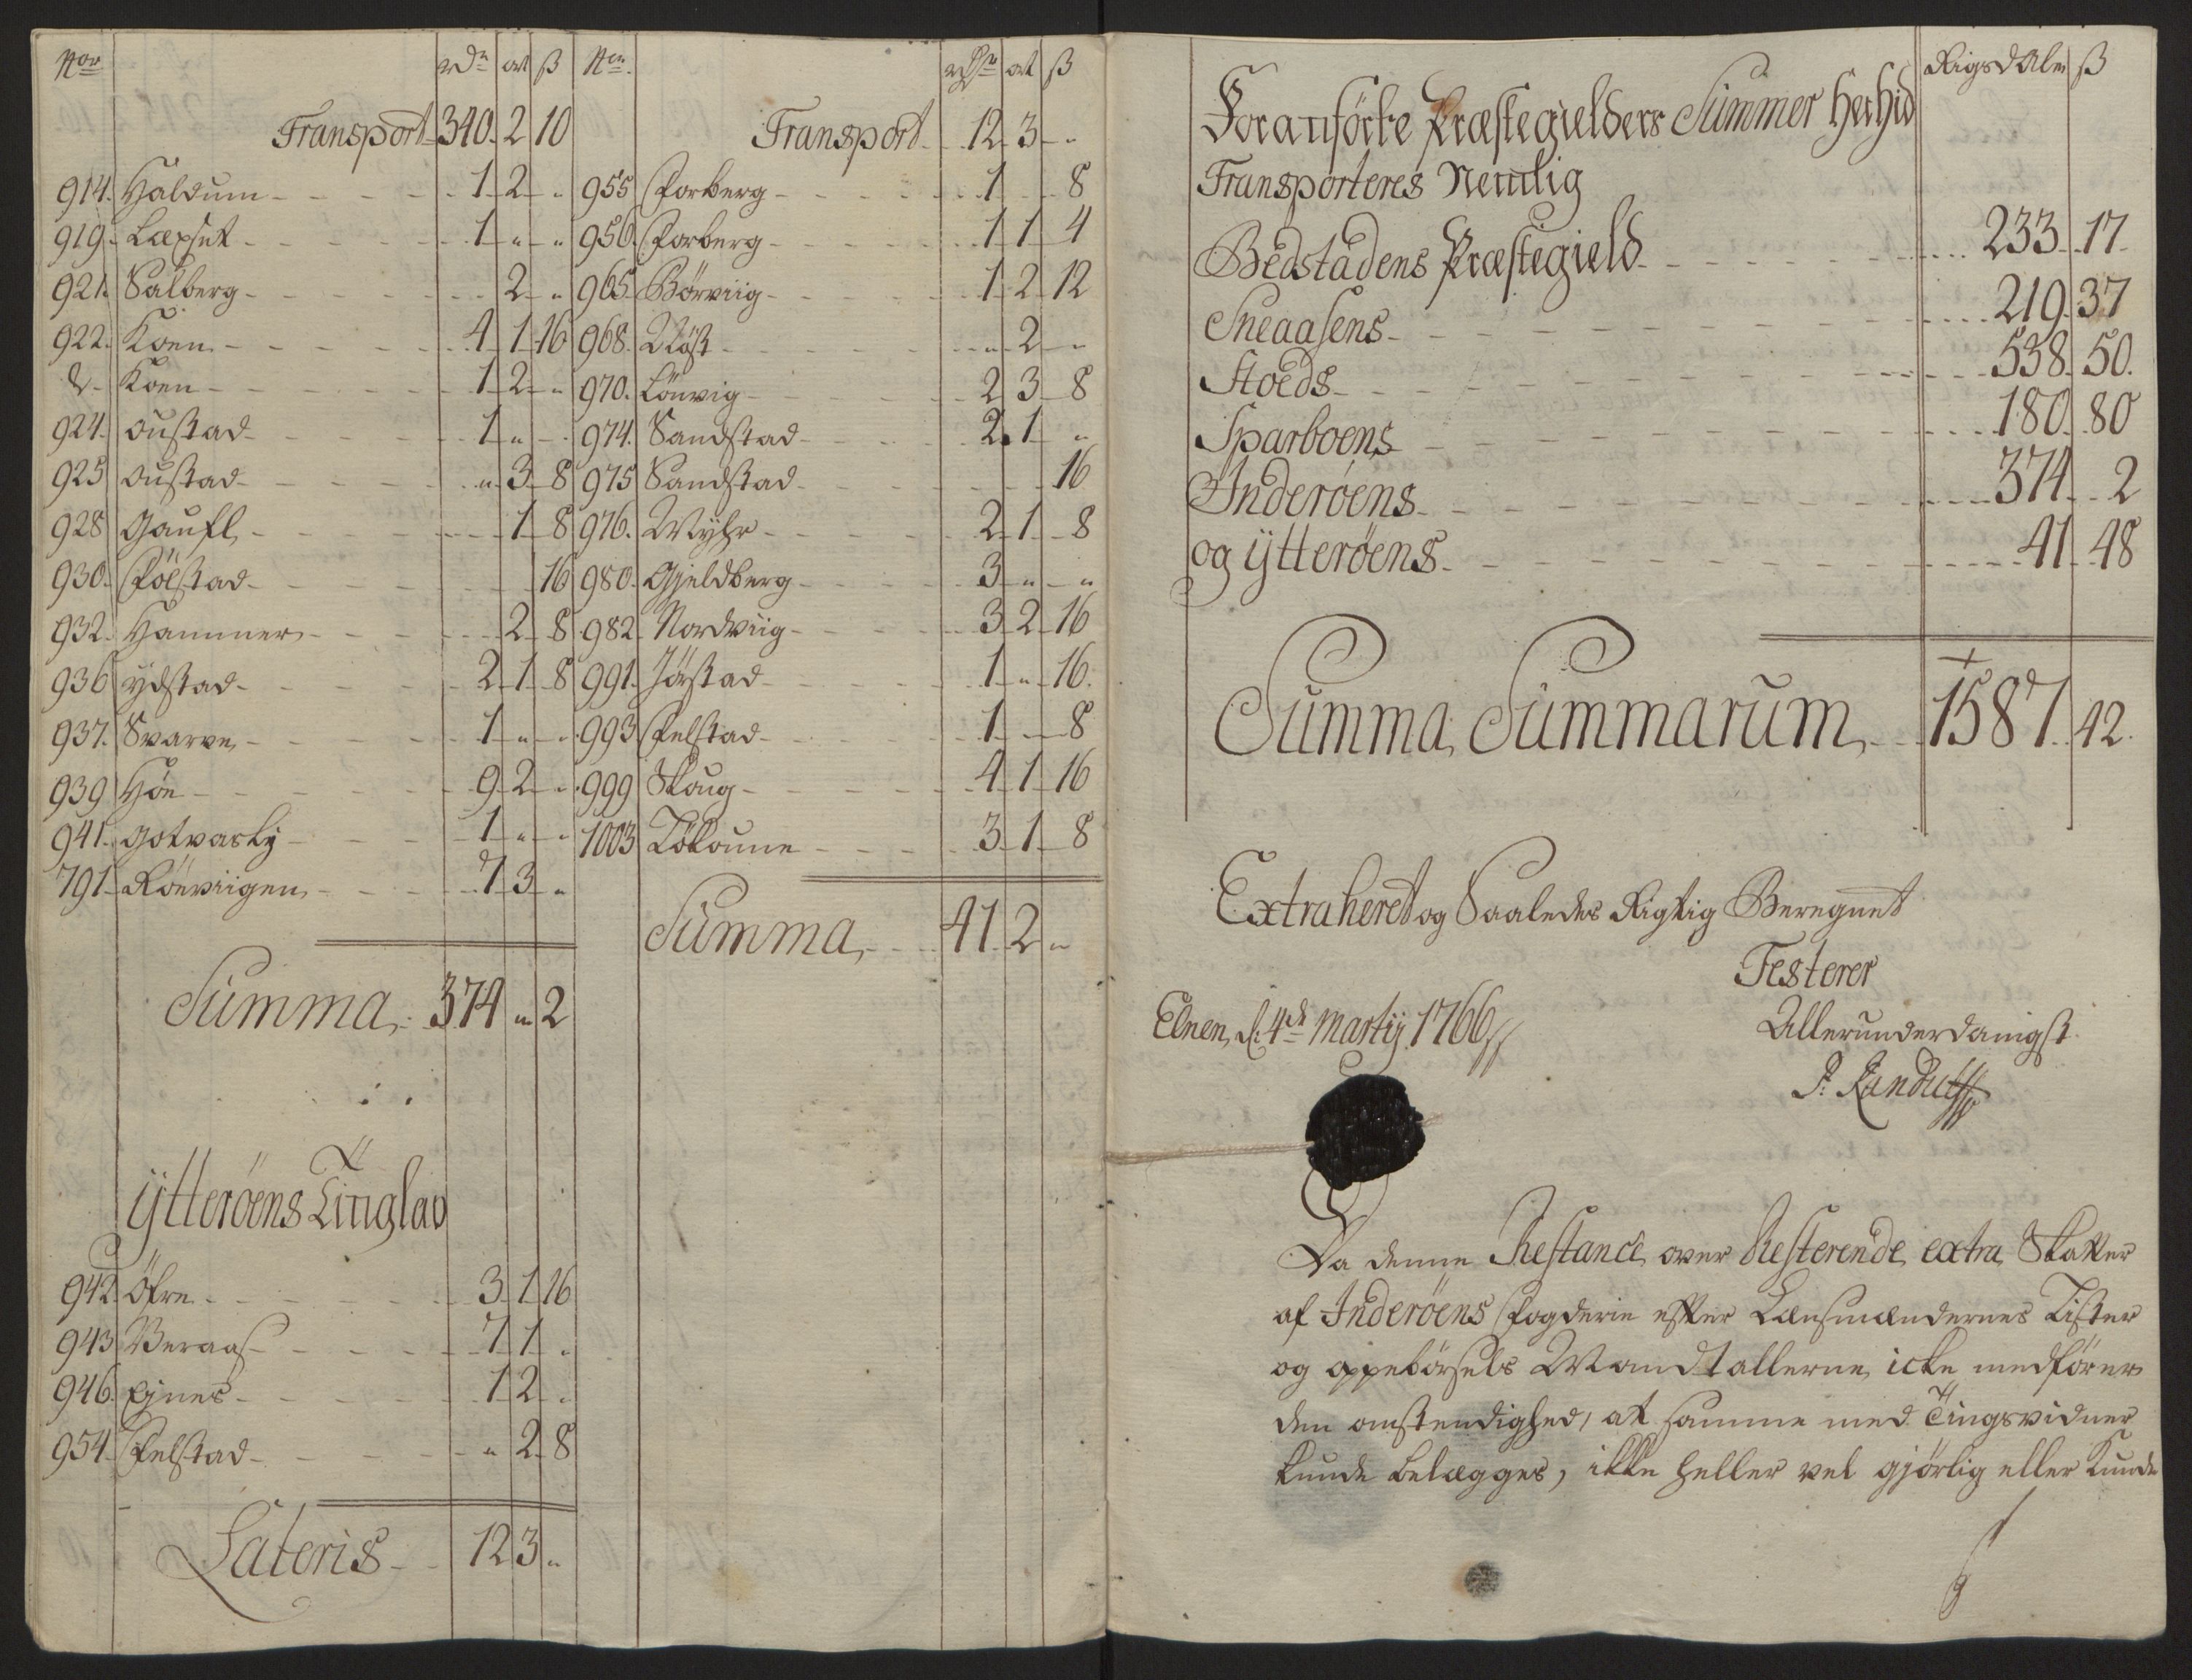 Nor rdr ort ß
Transport 340. 2 10
914. Haldum 1 2 "
919. Lexset 1 " "
921. Salberg 2 "
922. Koen 4 1 16
d- Koen 1 2 "
924. oustad 1 " -
925 oustad " 3 8
928 Gaufl 1 8
930. Fölstad 16
932. Hammer 2 8
936 ydstad 2 1 8
937. Svarve 1 " "
939 Höe 9 2 "
941. Gotvasly 1 " "
791 Röeviigen 7 3 "
Summa 374 " 2
Ytteröens Tinglav
942 öfre 3 1 16
943 Beraas 7 1 "
946. Ejnes 1 2 "
954. Felstad " 2 8
Lateris 12 3 "
Nor rdr ort ß
Transport 12 3 "
955 Forberg 1 8
956. Forberg 1 1 4
965. Börviig 1 2 12
968. Nöst " 2 "
970. Lönvig 2 3 8
974. Sandstad 2. 1 "
975 Sandstad 16
976. Wyhr 2 1 8
980. Gjeldberg 3 " "
982. Nordviig 3 2 16
991. Jörstad 1 " 16.
993 Felstad 1 8
999 Skoug 4 1 16
1003 Tökoune 3 1 8
Summa 41 2 "
Rigsdaler ß
Foranförte Præstegielders Summer Herhid
Transporteres Nemlig
Bedstadens Præstegield 233. 17.
Sneaasens 219. 37
Stoeds 538. 50.
Sparboens 180. 80
Inderöens 374 2
og ytteröens 41. 48
Summa Summarum 1587. 42.
Extraheret og Saaledes Rigtig Beregnet
Testerer
Elnen, d: 4de Martij 1766
Allerunderdanigst
P. Randulff
Da denne Restance over Resterende extra Skatter
af Inderöens Fogderie efter Lensmændernes Lister
og oppebörsels Mandtallerne icke medförer
den omstendighed, at samme med Tingsvidner
kunde belægges, ikke heller vel giörlig eller kunde